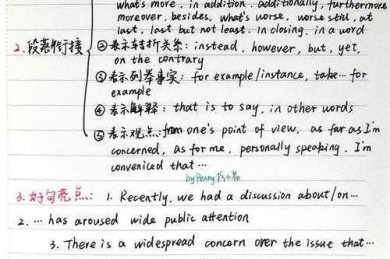 what's more, in addition, additionally, furthermore
moreover, besides, what's worse, worse still, at
last, last but not least. In closing, in a word
2. 段落衔接
②表示转折关系: instead, however, but, yet,
on the contrary
③表示列举事实: for example/instance, take… for
example
④表示解释: that is to say, in other words
⑤表示观点: from one's point of view, as far as I'm
concerned, as for me, personally speaking, I'm
conveniced that…
by Penny
3. 好句亮点: 1. Recently, we had a discussion about/on…
2. … has aroused wide public attention
3. There is a widespread concern over the issue that…